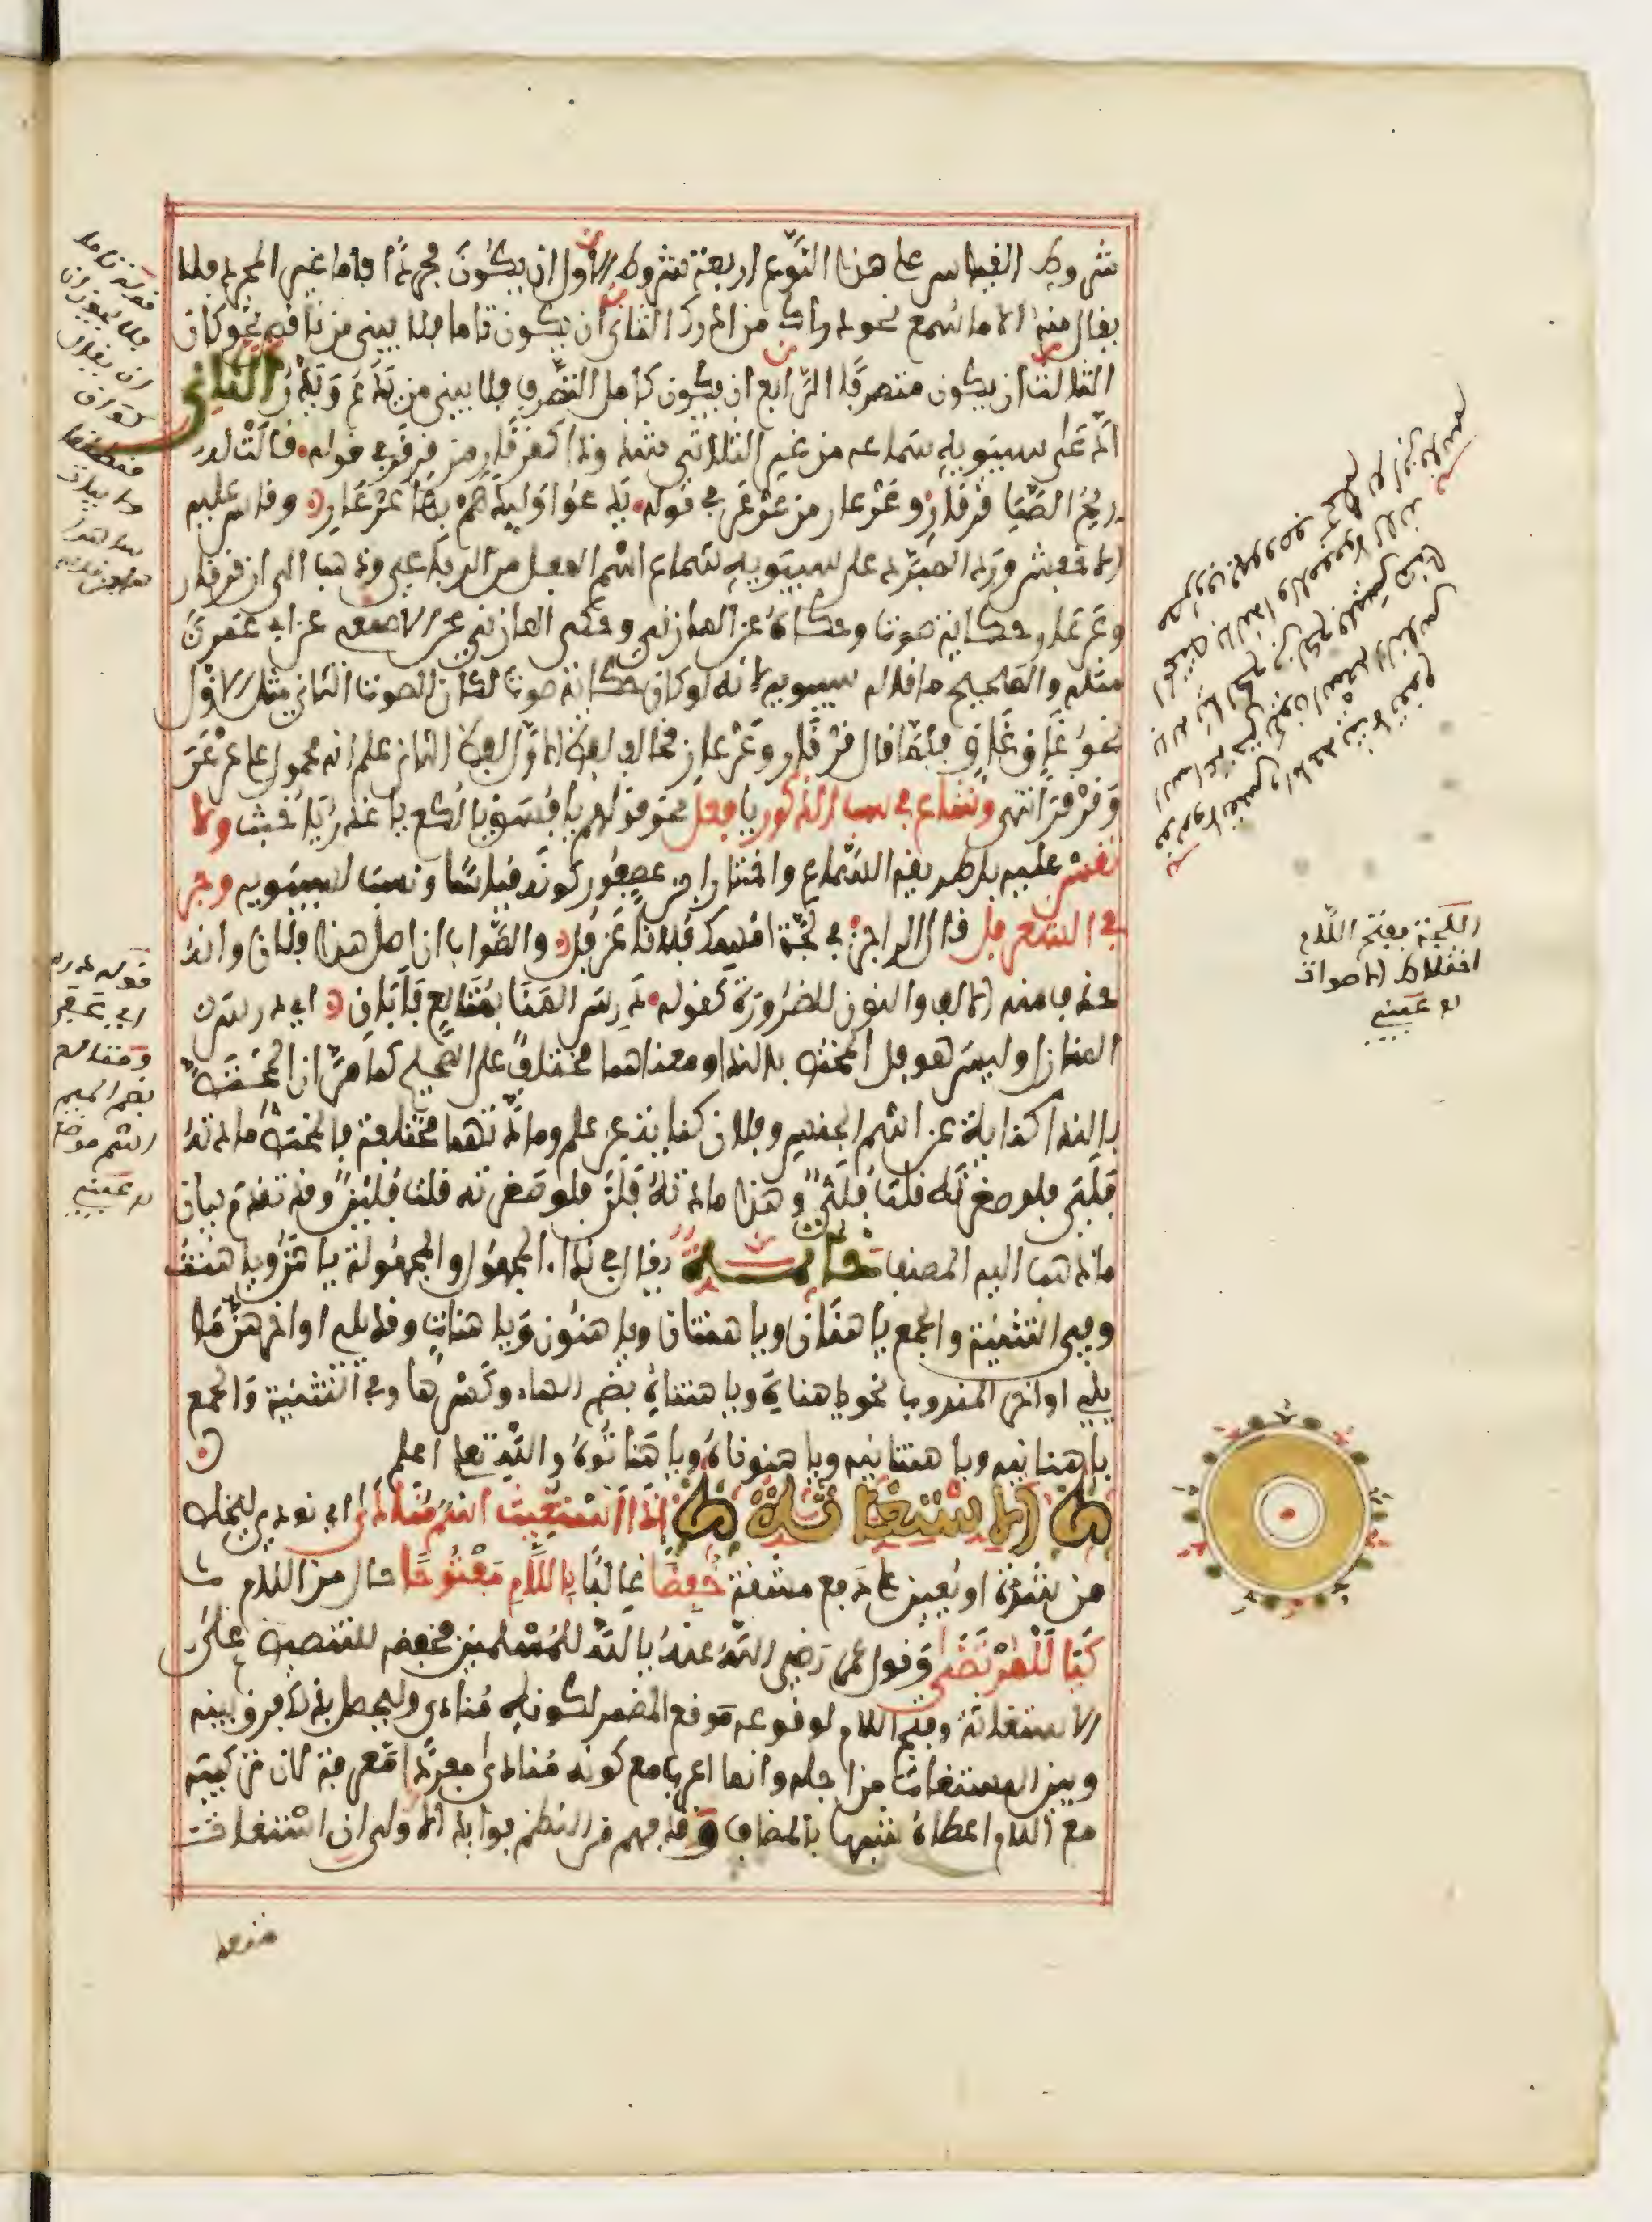 شروط القياس على هذا النوع اربعة شروط الاول ان يكون مجردا فاما غير المجرد فلا
يقال منه الا ما سمع نحو دراك من ادرك الثاني ان يكون تاما فلا يبنى من ناقص نحو كان
الثالث ان يكون متصرفا الرابع ان يكون كامل التصرف فلا يبنى من يدع ويذر الثاني
ادعى سيبويه سماعه من غير الثلاثي شذوذا كقرقار من قرقر في قوله قالت له
ريح الصبا قرقار وعرعار من عرعر في قوله يدعو وليدهم بها عرعار وقاس عليه
الاخفش ورد المبرد على سيبويه سماع اسم الفعل من الرباعي وذهب الى ان قرقار
وعرعار حكاية صوت وحكاه عن المازني وحكى المازني عن الاصمعي عن ابي عمرو
مثله والصحيح ما قاله سيبويه لانه لو كان حكاية صوت لكان الصوت الثاني مثل الاول
نحو غاق غاق فلما قال قرقار وعرعار فخالف لفظ الاول لفظ الثاني علم انه محمول على عرعر
وقرقر انتهى وشاع في سب الذكور يا فعل نحو قولهم يا فسق يا لكع يا غدر يا خبث ولا
تقس عليه بل طريقه السماع واختار ابن عصفور كونه قياسا ونسب لسيبويه وجر
في الشعر فل قال الراجز في لجة امسك فلانا عن فل والصواب ان اصل هذا فلان وانه
حذف منه الالف والنون للضرورة كقوله درس المنا بمتالع فأبان اي درس
المنازل وليس هو فل المختص بالنداء ومعناهما مختلف على الصحيح كما مر ان المختص
بالنداء كناية عن اسم الجنس وفلان كناية عن علم ومادتهما مختلفة فالمختص مادته
فلي فلو صغرته قلت فلي وهذا مادته فلن فلو صغرته قلت فلين وقد تقدم بيان
ما ذهب اليه المصنف خاتمة يقال في نداء المجهول والمجهولة يا هن ويا هنت
وفي التثنية والجمع يا هنان ويا هنتان ويا هنون ويا هنات وقد يلي اواخرهن ما
يلي اواخر المندوب نحو يا هناه ويا هنتاه بضم الهاء وكسرها وفي التثنية والجمع
يا هنانيه ويا هنتانيه ويا هنوناه ويا هناتوه والله تعلى اعلم
الاستغاثة اذا استغيث اسم منادى اي نودي ليخلص
من شدة او يعين على دفع مشقة خفضا غالبا باللام مفتوحا حال من اللام
كيا للمرتضى وقول عمر رضي الله عنه يا لله للمسلمين فخفضه للتنصيص على
الاستغاثة وفتح اللام لوقوعه موقع المضمر لكونه منادى وليحصل بذلك فرق بينه
وبين المستغاث من اجله وانما اعرب مع كونه منادى مفردا معرفة لان تركيبه
مع اللام اعطاه شبها بالمضاف وقد فهم من النظم فوائد الاولى ان استغاث
متعد
قوله تاما
فلا يجوز ان
ان يقال
كوان
قوله درس
اي عفى
ومتالع
بضم الميم
اسم موضع
له عينى
اللجة بفتح اللام
اختلاط الاصوات
له عينى